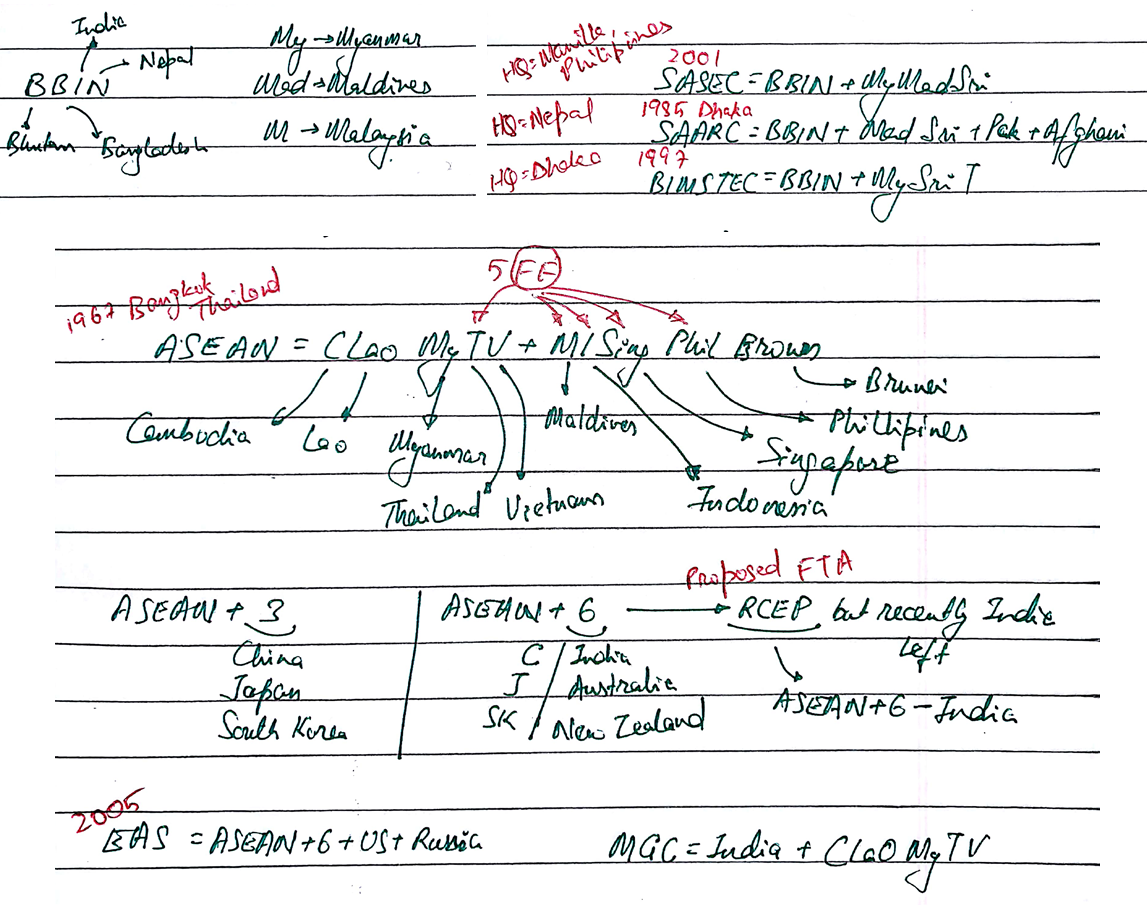 India
Nepal
BBIN
Bhutan Bangladesh
My → Myanmar
Mad → Maldives
M → Malaysia
HQ=Manilla, Philipines
2001
SASEC = BBIN + My Mad Sri
HQ=Nepal 1985 Dhaka
SAARC = BBIN + Mad Sri + Pak + Afghani
HQ=Dhaka 1997
BIMSTEC = BBIN + My Sri T
5 FF
1967 Bangkok Thailand
ASEAN = CLao My TV + MI Sing Phil Brown
Brunei
Cambodia Lao Myanmar Maldives Phillipines
Singapore
Thailand Vietnam Indonesia
Proposed FTA
ASEAN + 3
China
Japan
South Korea
ASEAN + 6 → RCEP but recently India left
C / India
J / Australia
SK / New Zealand
ASEAN+6 - India
2005
EAS = ASEAN+6+US+Russia
MGC = India + CLaO My TV